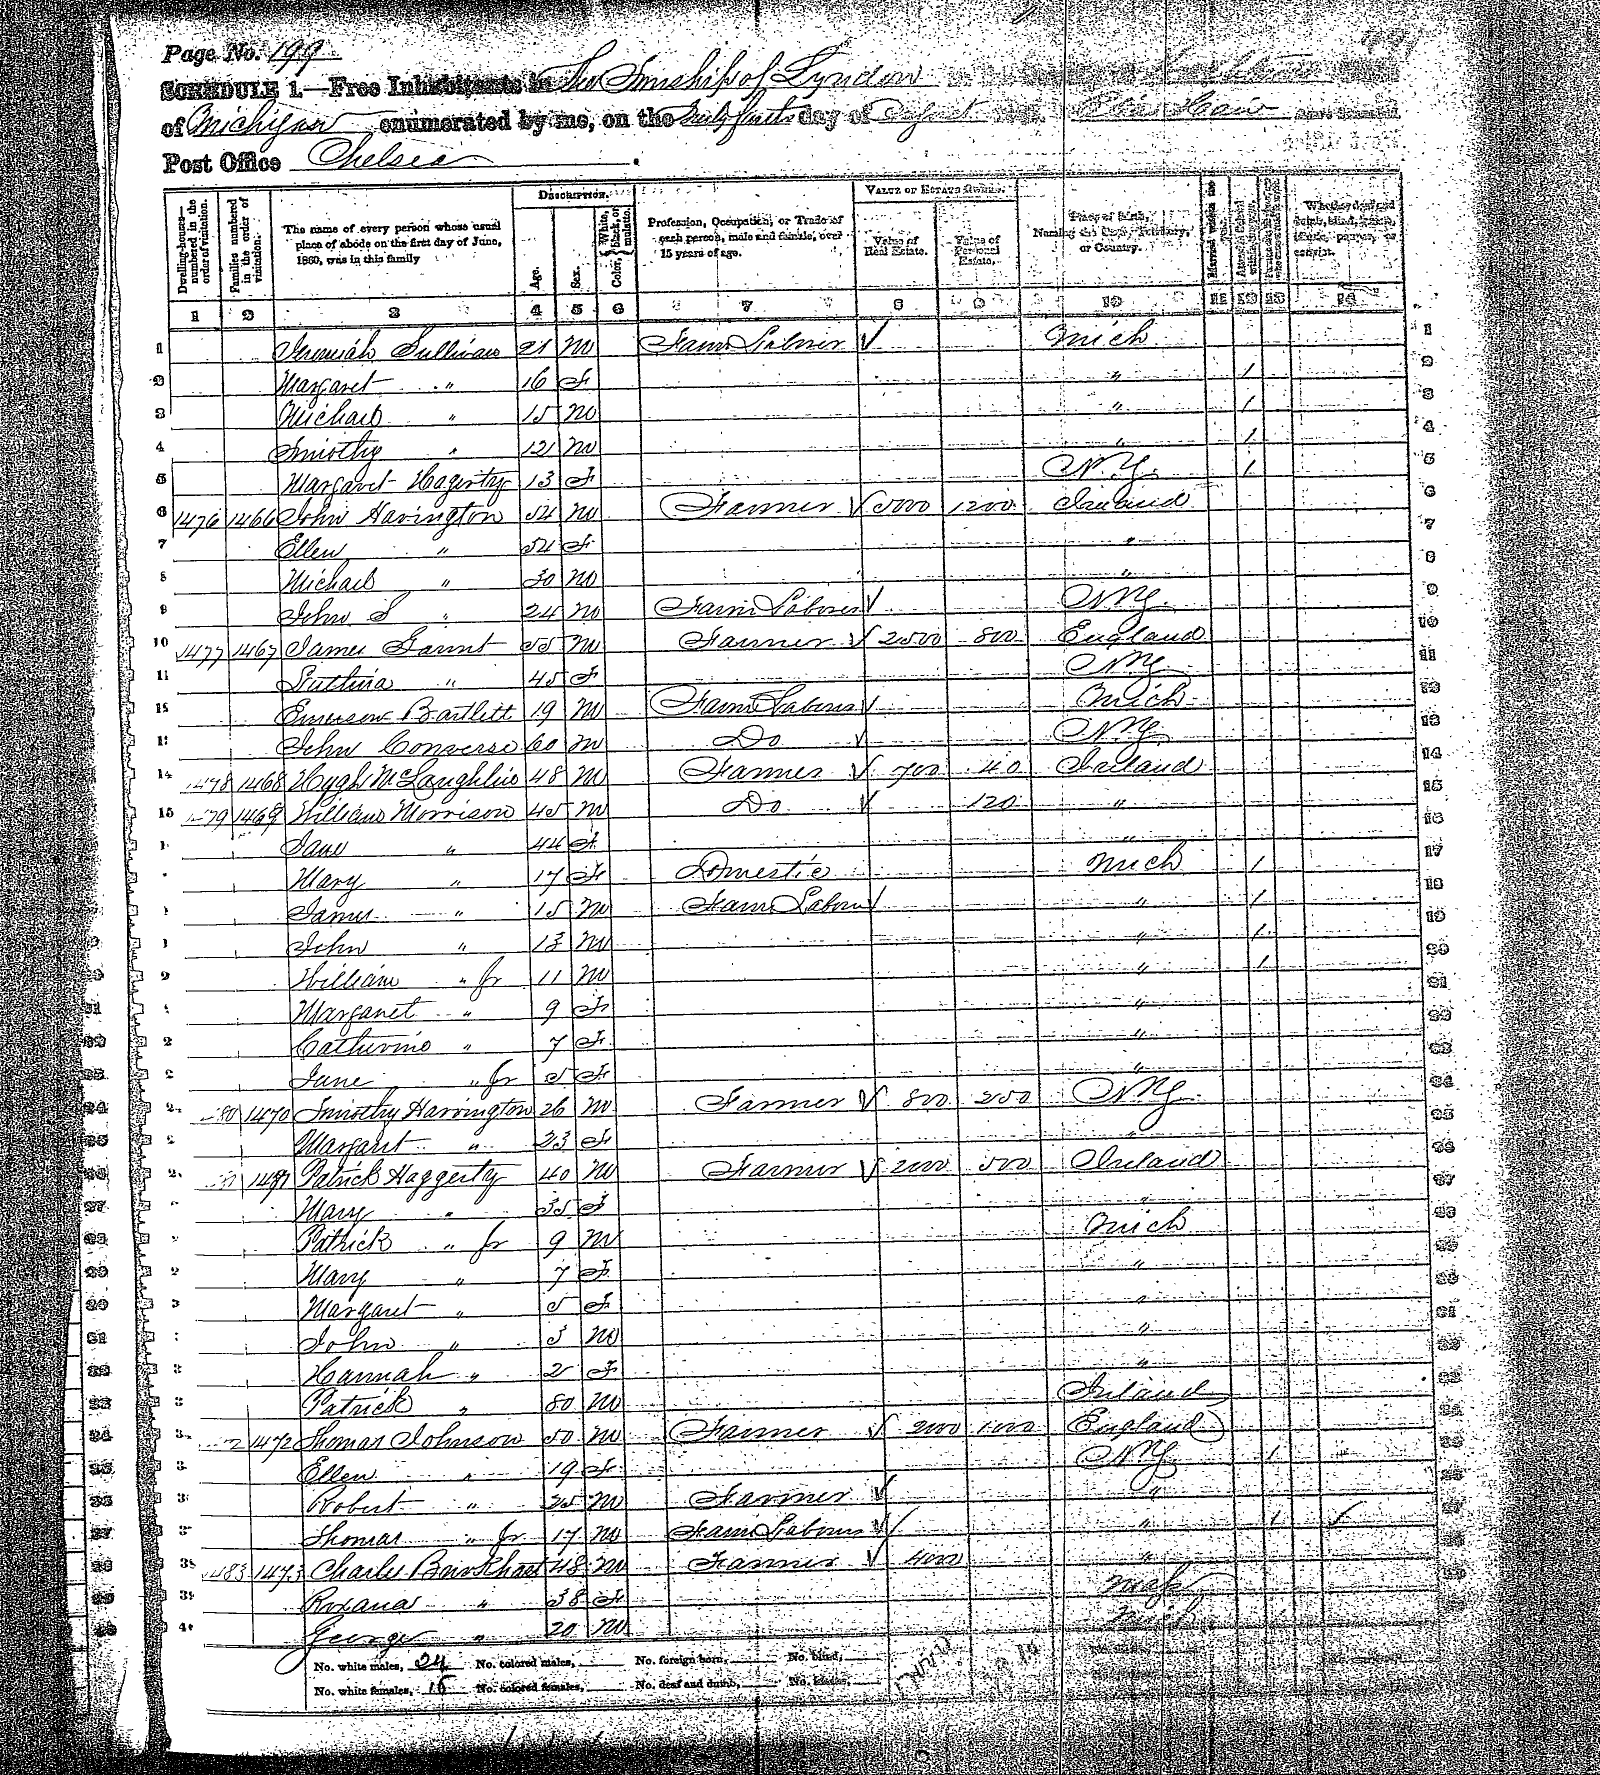 Page No. 199
SCHEDULE 1.—Free Inhabitants in The Township of Lyndon
of Michigan enumerated by me, on the day of August
Post Office Chelsea
DESCRIPTION. VALUE OF ESTATE OWNED.
Dwelling-houses—numbered in the order of visitation. Families numbered in the order of visitation. The name of every person whose usual place of abode on the first day of June, 1860, was in this family Age. Sex. Color, {White, black, or mulatto. Profession, Occupation, or Trade of each person, male and female, over 15 years of age. Value of Real Estate. Value of Personal Estate. Place of Birth, Naming the State, Territory, or Country. Married within the Whether deaf and dumb, blind, insane, idiotic, pauper, or convict.
1 2 3 4 5 6 7 8 9 10 11 12 13 14
1 Jeremiah Sullivan 21 M Farm Laborer Mich 1
2 Margaret " 16 F " 1 2
3 Michael " 15 M " 1 3
4 Timothy " 12 M " 1 4
5 Margaret Hagerty 13 F N.Y. 1 5
6 1476 1466 John Harington 54 M Farmer 5000 1200 Ireland 6
7 Ellen " 54 F " 7
8 Michael " 30 M " 8
9 John S " 24 M Farm Laborer N.Y. 9
10 1477 1467 James 55 M Farmer 2500 800 England 10
11 " 45 F N.Y. 11
Emerson Bartlett 19 M Farm Laborer Mich
John Converse 60 M Do N.Y.
14 1478 1468 Hugh McLaughlin 48 M Farmer 700 40 Ireland 14
15 79 1469 William Morrison 45 M Do 120 " 15
Jane " 44 F "
Mary " 17 F Domestic Mich 1 17
James " 15 M Farm Laborer " 1
John " 13 M " 1 19
William " Jr 11 M " 1
Margaret " 9 F "
Catherine " 7 F "
Jane " Jr 5 F "
80 1470 Timothy Harrington 26 M Farmer 800 250 N.Y.
Margaret " 23 F "
Patrick Haggerty 40 M Farmer 2000 500 Ireland
Mary " 35 F "
Patrick " Jr 9 M Mich
Mary " 7 F "
Margaret " 5 F "
John " 3 M "
Hannah " 2 F "
Patrick " 80 M Ireland
1472 Thomas Johnson 50 M Farmer 2000 1000 England
Ellen " 19 F N.Y. 1
Robert " 25 M Farmer "
Thomas " Jr 17 M Farm Laborer " 1
483 1473 Charles Burkhart 48 M Farmer 4000 "
Roxana " 38 F
George " 20 M Mich
No. white males, 24 No. colored males, No. foreign born, No. blind,
No. white females, 16 No. colored females, No. deaf and dumb, No. insane,